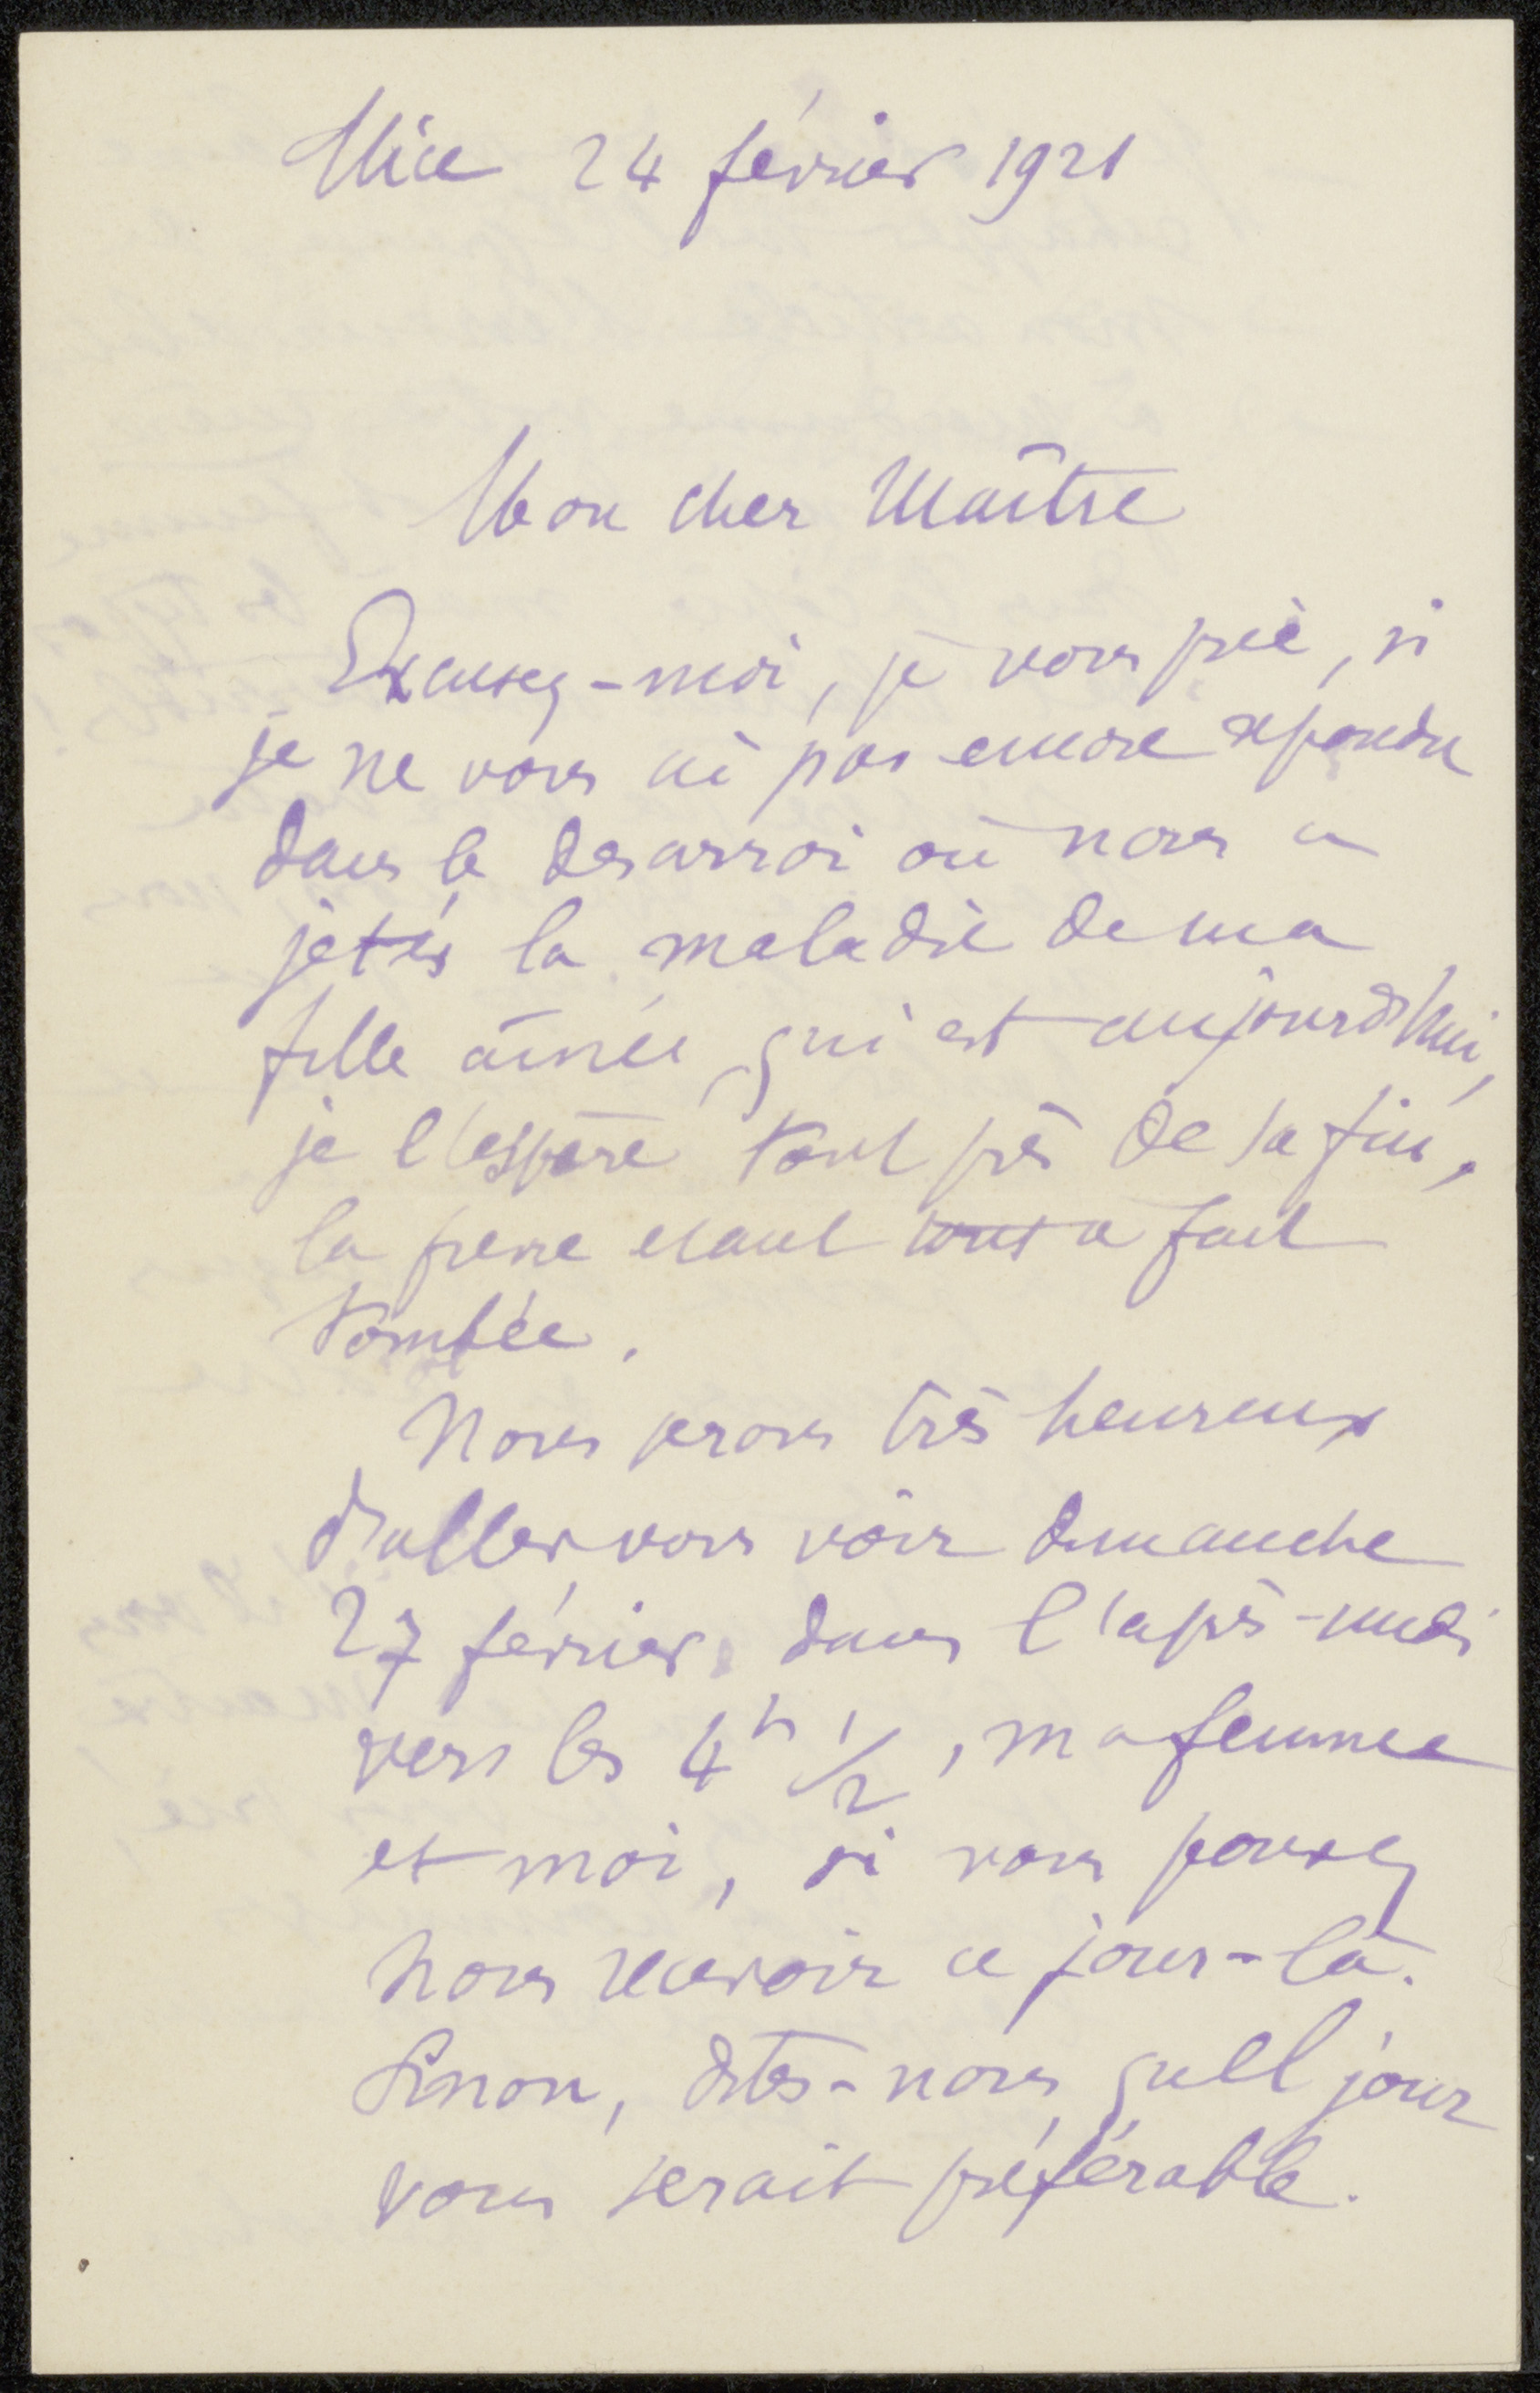 Nice 24 février 1921
Mon cher Maître
Excusez-moi, je vous prie, si
je ne vous ai pas encore repondu
dans le desarroi où nous a
jetés la maladie de ma
fille aînée, qui est aujourd'hui,
je l'espère tout près de sa fin,
la fievre etant tout a fait
tombée.
Nous serons très heureux
d'aller vous voir dimanche
27 février dans l'après-midi
vers les 4h 1/2, ma femme
et moi, si vous pouvez
nous recevoir ce jour-là.
Sinon, dites-nous quel jour
vous serait préférable.